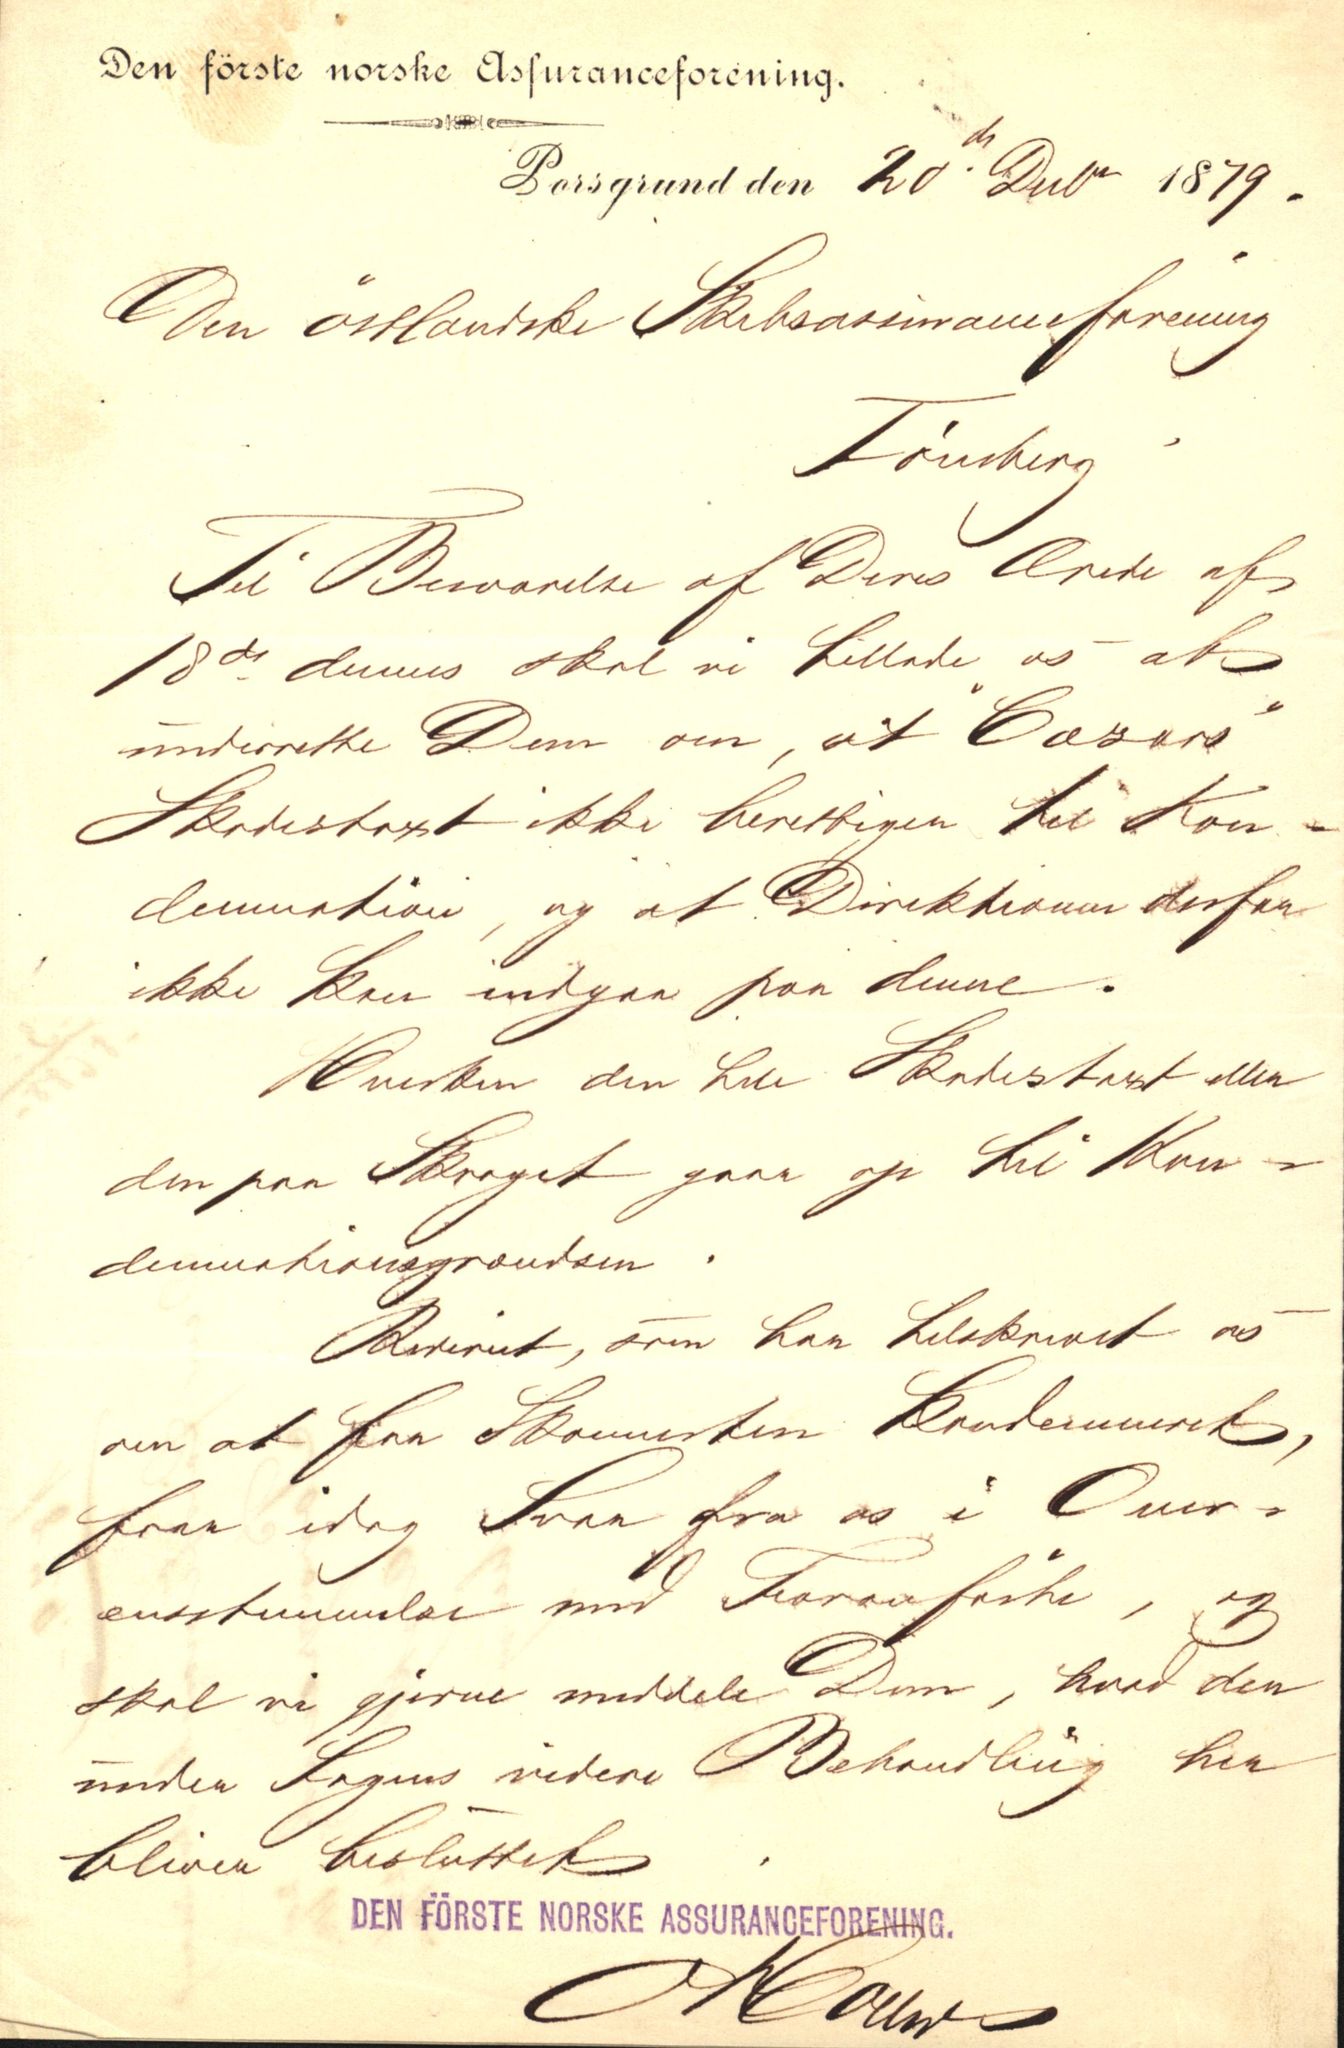 Den förste norske Assuranceforening.
Porsgrund den 20de Decbr 1879.
Den östlandske Skibsassuranceforening
Tönsberg
Til Besvarelse af Deres Ærede af
18de dennes skal vi tillade os at
underrette Dem om, at "Cæsars"
Skadestaxt ikke berettiger til Kon-
demnation, og at Direktionen derfor
ikke kan indgaa paa denne.
Hverken den hele Skadestaxt eller
den paa Skroget gaar op til Kon-
demnationsgrændsen.
Rederiet, som har tilskrevet os
om at faa Skonnerten kondemneret,
faar idag Svar fra os i Over-
ensstemmelse med Foranførte, og
skal vi gjerne meddele Dem, hvad der
under Sagens videre Behandling her
bliver besluttet.
DEN FÖRSTE NORSKE ASSURANCEFORENING.